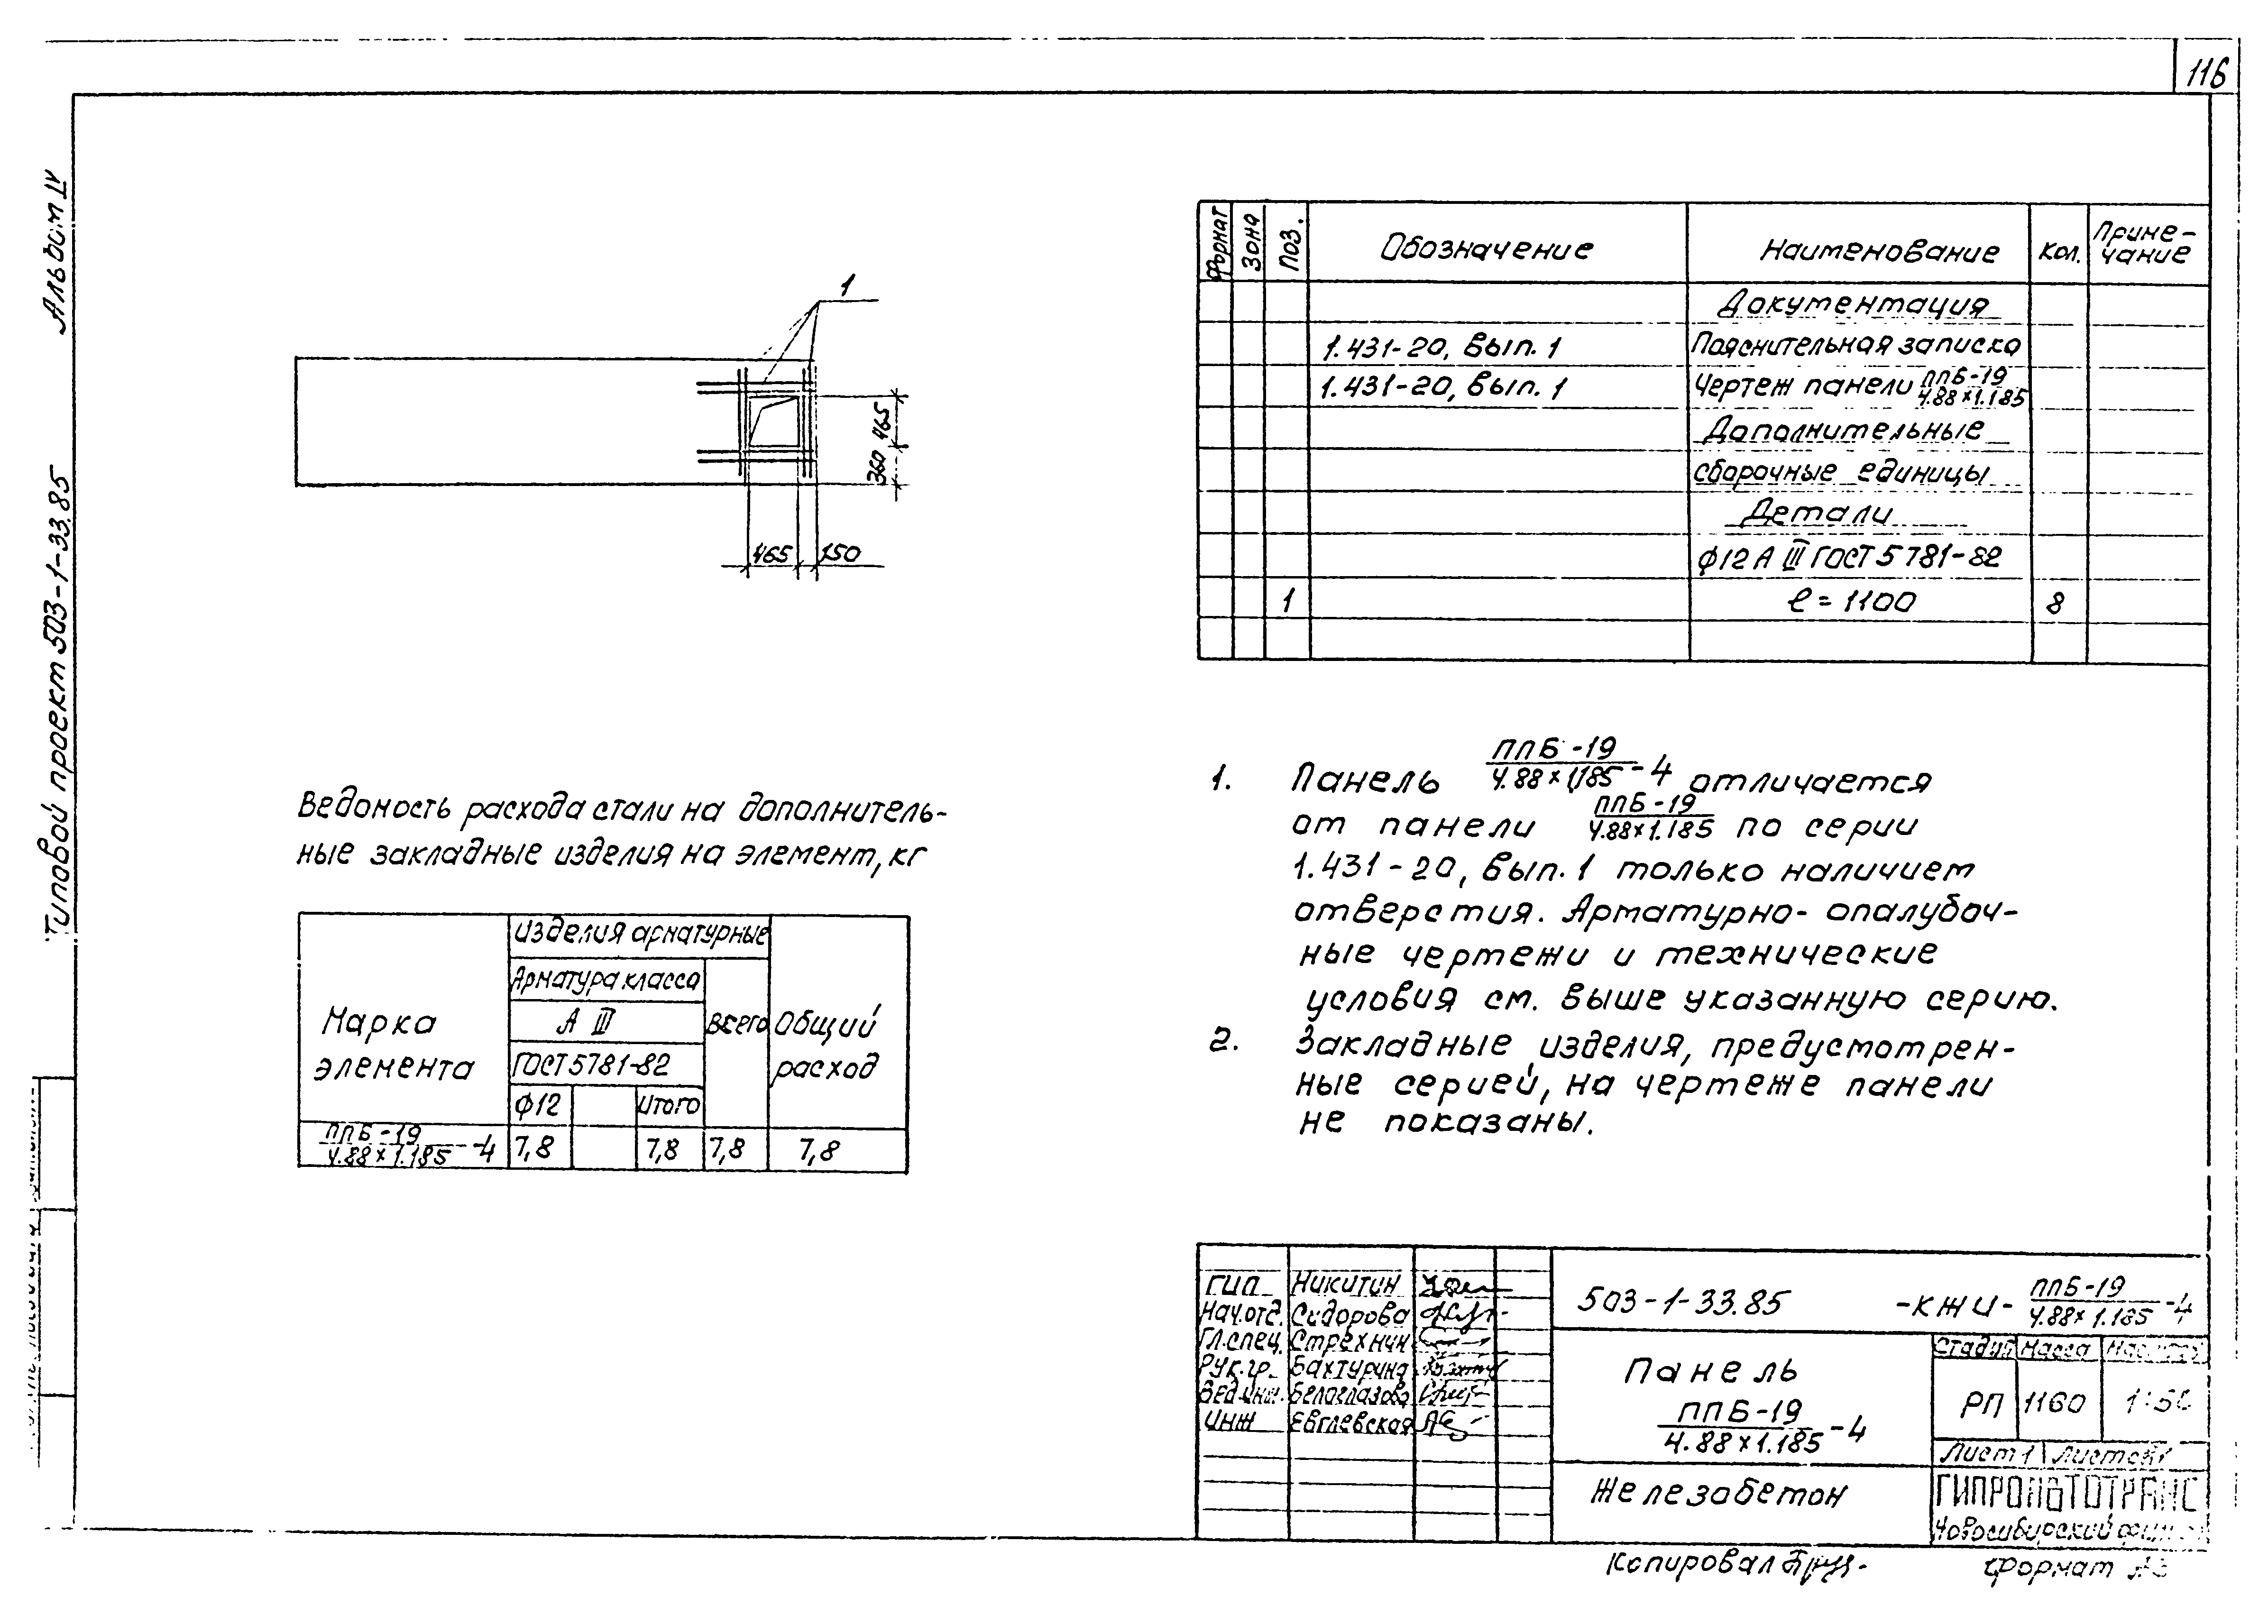 116
Альбом IV
Типовой проект 503-1-33.85
1
465
360
465
150
Формат Зона Поз. Обозначение Наименование Кол. Приме-
чание
Документация
1.431-20, вып. 1 Пояснительная записка
1.431-20, вып. 1 Чертеж панели ППБ-19
4.88×1.185
Дополнительные
сборочные единицы
Детали
Ф12 А III ГОСТ 5781-82
1 ℓ = 1100 8
Ведомость расхода стали на дополнитель-
ные закладные изделия на элемент, кг
Марка
элемента
Изделия арматурные
Арматура класса
А III
ГОСТ 5781-82
Ф12 Итого
Всего
Общий
расход
ППБ-19
4.88×1.185 -4 7,8 7,8 7,8 7,8
1. Панель ППБ-19
4.88×1,185 -4 отличается
от панели ППБ-19
4.88×1.185 по серии
1.431-20, вып. 1 только наличием
отверстия. Арматурно-опалубоч-
ные чертежи и технические
условия см. выше указанную серию.
2. Закладные изделия, предусмотрен-
ные серией, на чертеже панели
не показаны.
ГИП Никитин
Нач.отд. Сидорова
Гл.спец. Стрехнин
Рук.гр. Бахтурина
Вед.инж. Белоглазова
Инж Евглевская
503-1-33.85 -КЖИ- ППБ-19
4.88×1.185 -4
Панель
ППБ-19
4.88×1.185 -4
Стадия Масса Масштаб
РП 1160 1:50
Лист 1 Листов 1
Железобетон
ГИПРОАВТОТРАНС
Новосибирский филиал
Копировал
Формат А3